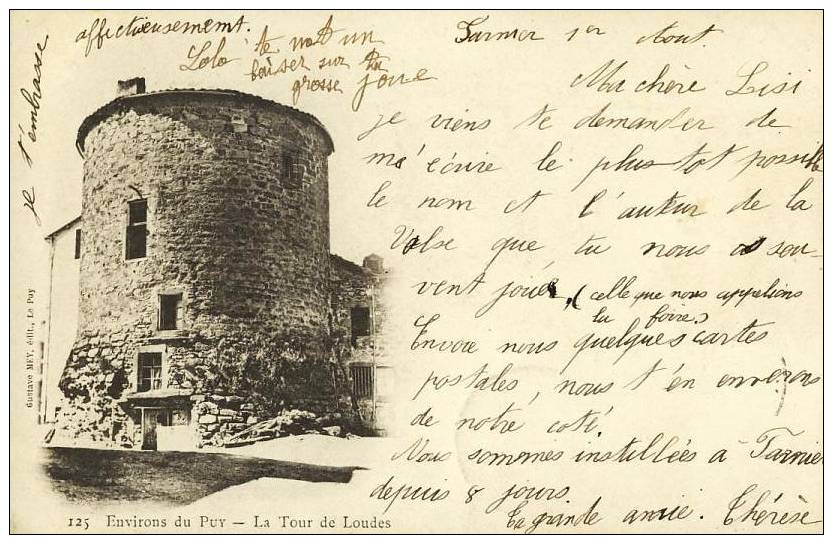 Tarnier 1er Aout.
Ma chère Lisi
je viens te demander de
m'écrire le plus tot possible
le nom et l'auteur de la
Valse que tu nous as sou-
vent jouée, (celle que nous appelions
la foire)
Envoie nous quelques cartes
postales, nous t'en enverrons
de notre coté.
Nous sommes installées à Tarnier
depuis 8 jours.
Ta grande amie. Thérèse
je t'embrasse
affectueusement.
Lolo te met un
baiser sur ta
grosse joue
Gustave MEY, édit., Le Puy
125 Environs du PUY — La Tour de Loudes